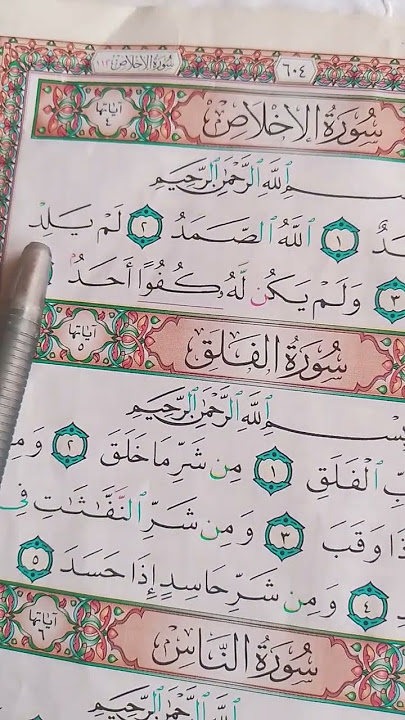 ٦٠٤
سُورَةُ الإِخْلَاصِ ١١٢
سُورَةُ الإِخْلَاصِ
آيَاتُهَا ٤
اللَّهِ الرَّحْمَٰنِ الرَّحِيمِ
١ اللَّهُ الصَّمَدُ ٢ لَمْ يَلِدْ
٣ وَلَمْ يَكُن لَّهُ كُفُوًا أَحَدٌ
سُورَةُ الفَلَقِ
آيَاتُهَا ٥
بِسْمِ اللَّهِ الرَّحْمَٰنِ الرَّحِيمِ
الْفَلَقِ ١ مِن شَرِّ مَا خَلَقَ ٢
وَقَبَ ٣ وَمِن شَرِّ النَّفَّاثَاتِ فِي
٤ وَمِن شَرِّ حَاسِدٍ إِذَا حَسَدَ ٥
سُورَةُ النَّاسِ
آيَاتُهَا ٦
اللَّهِ الرَّحْمَٰنِ الرَّحِيمِ